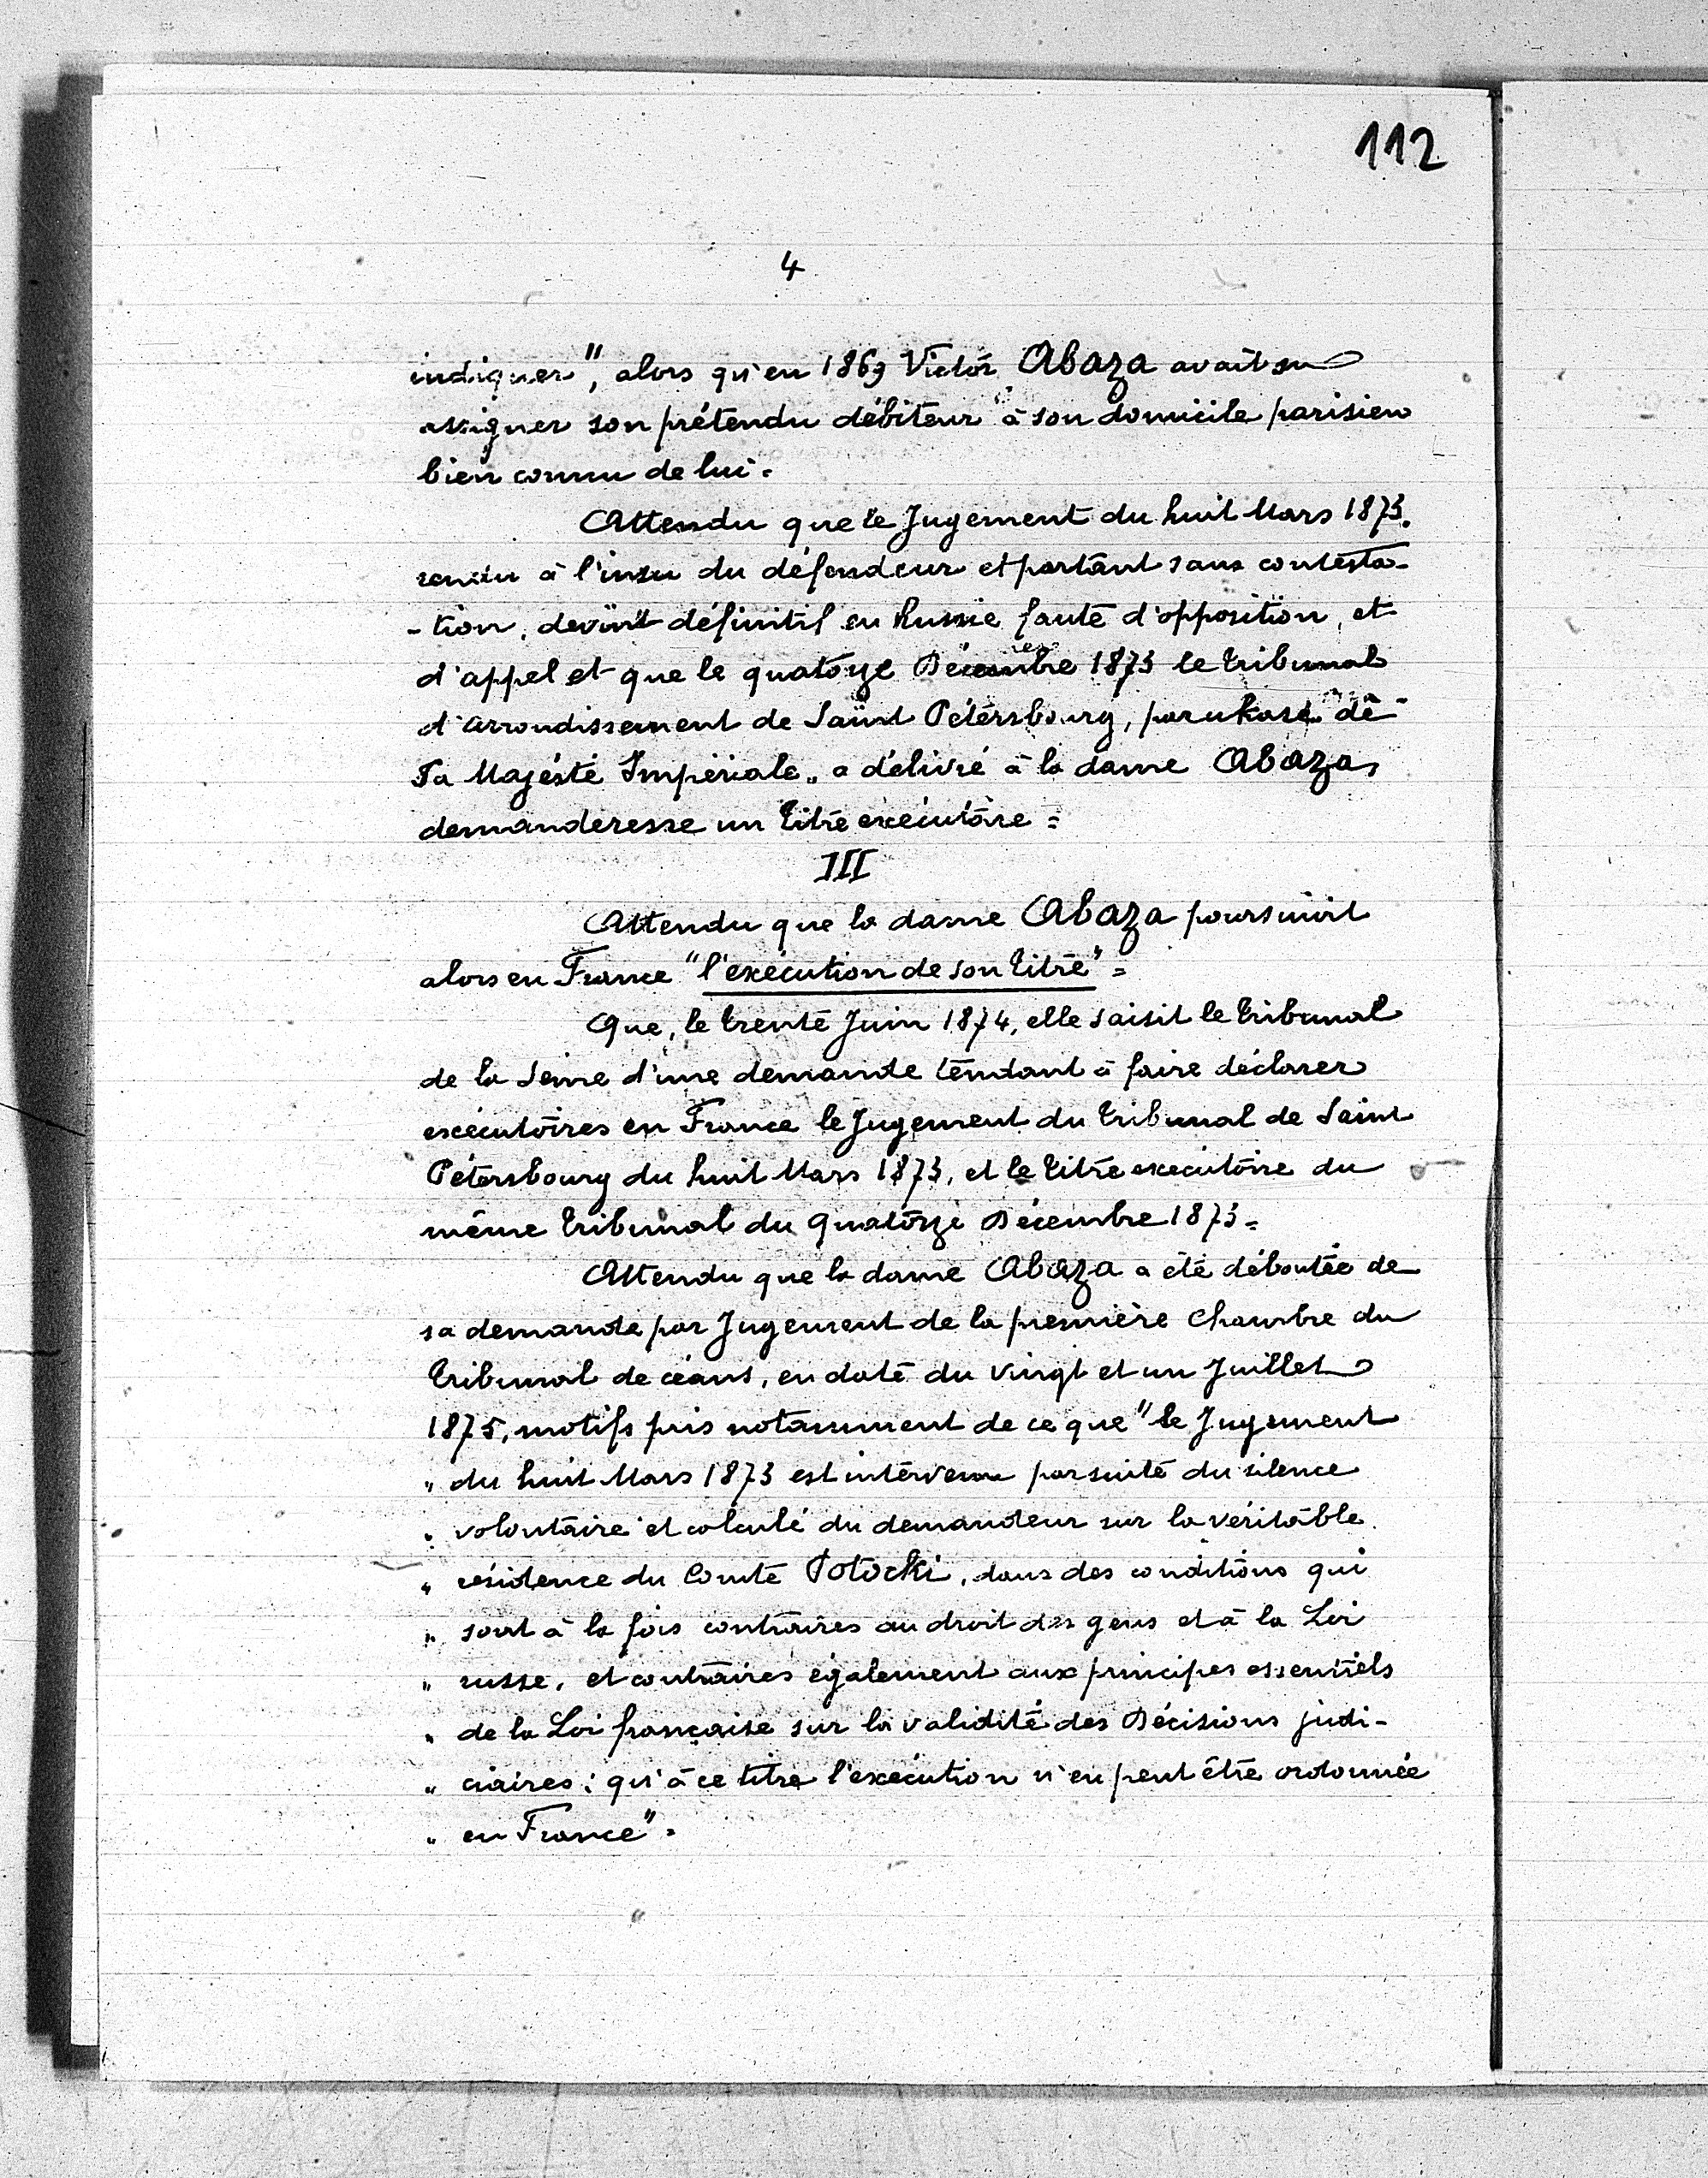 112
4
indiquer", alors qu'en 1869 Victor Abaza avait su
assigner son prétendu débiteur à son domicile parisien
bien connu de lui =
Attendu que le Jugement du huit Mars 1873.
rendu à l'insu du défendeur et partant sans contesta-
-tion, devint définitif en Russie faute d'opposition, et
d'appel et que le quatorze Décembre 1873 le tribunal
d'arrondissement de Saint Pétersbourg, par ukase de
Sa Majesté Impériale, a délivré à la dame Abaza,
demanderesse un titre exécutoire =
III
Attendu que la dame Abaza poursuivit
alors en France "l'exécution de son titre" =
Que, le trente Juin 1874, elle saisit le tribunal
de la Seine d'une demande tendant à faire déclarer
exécutoires en France le Jugement du tribunal de Saint
Pétersbourg du huit Mars 1873, et le titre exécutoire du
même tribunal du quatorze Décembre 1873 =
Attendu que la dame Abaza a été déboutée de
sa demande par Jugement de la première Chambre du
tribunal de céans, en date du vingt et un Juillet
1875, motifs pris notamment de ce que "le Jugement
" du huit Mars 1873 est intervenu par suite du silence
" volontaire et calculé du demandeur sur la véritable
" résidence du Comte Potocki, dans des conditions qui
" sont à la fois contraires au droit des gens et à la Loi
" russe, et contraires également aux principes essentiels
" de la Loi française sur la validité des Décisions judi-
" ciaires ; qu'à ce titre l'exécution n'en peut être ordonnée
" en France" =